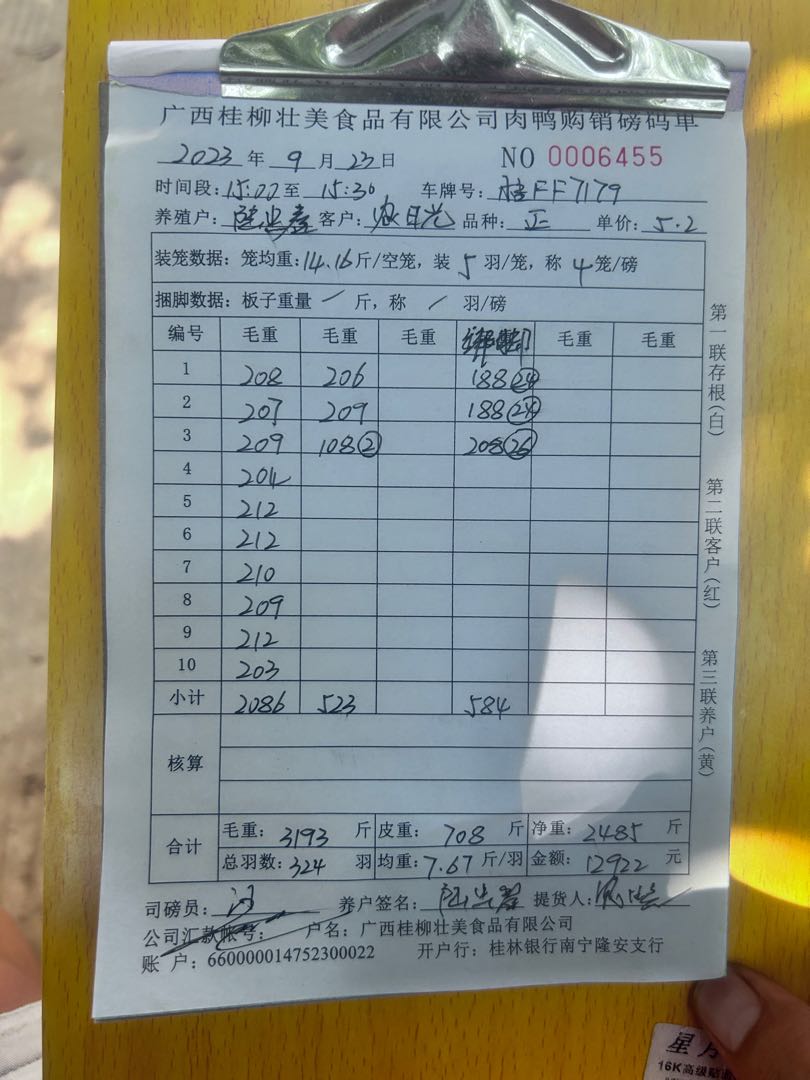 广西桂柳壮美食品有限公司肉鸭购销磅码单
2023 年 9 月 23 日 NO 0006455
时间段: 15:00 至 15:30 车牌号: 桂FF7179
养殖户: 客户: 农日光 品种: 正 单价: 5.2
装笼数据: 笼均重: 14.16 斤/空笼, 装 5 羽/笼, 称 4 笼/磅
捆脚数据: 板子重量 / 斤, 称 / 羽/磅
编号 毛重 毛重 毛重 毛重 毛重
1 208 206 188 (24)
2 207 209 188 (24)
3 209 108 (2) 208 (26)
4 204
5 212
6 212
7 210
8 209
9 212
10 203
小计 2086 523 584
核算
合计 毛重: 3193 斤 皮重: 708 斤 净重: 2485 斤
总羽数: 324 羽 均重: 7.67 斤/羽 金额: 12922 元
司磅员: 养户签名: 提货人:
公司汇款帐号: 户名: 广西桂柳壮美食品有限公司
账 户: 660000014752300022 开户行: 桂林银行南宁隆安支行
第一联存根(白)
第二联客户(红)
第三联养户(黄)
16K高级